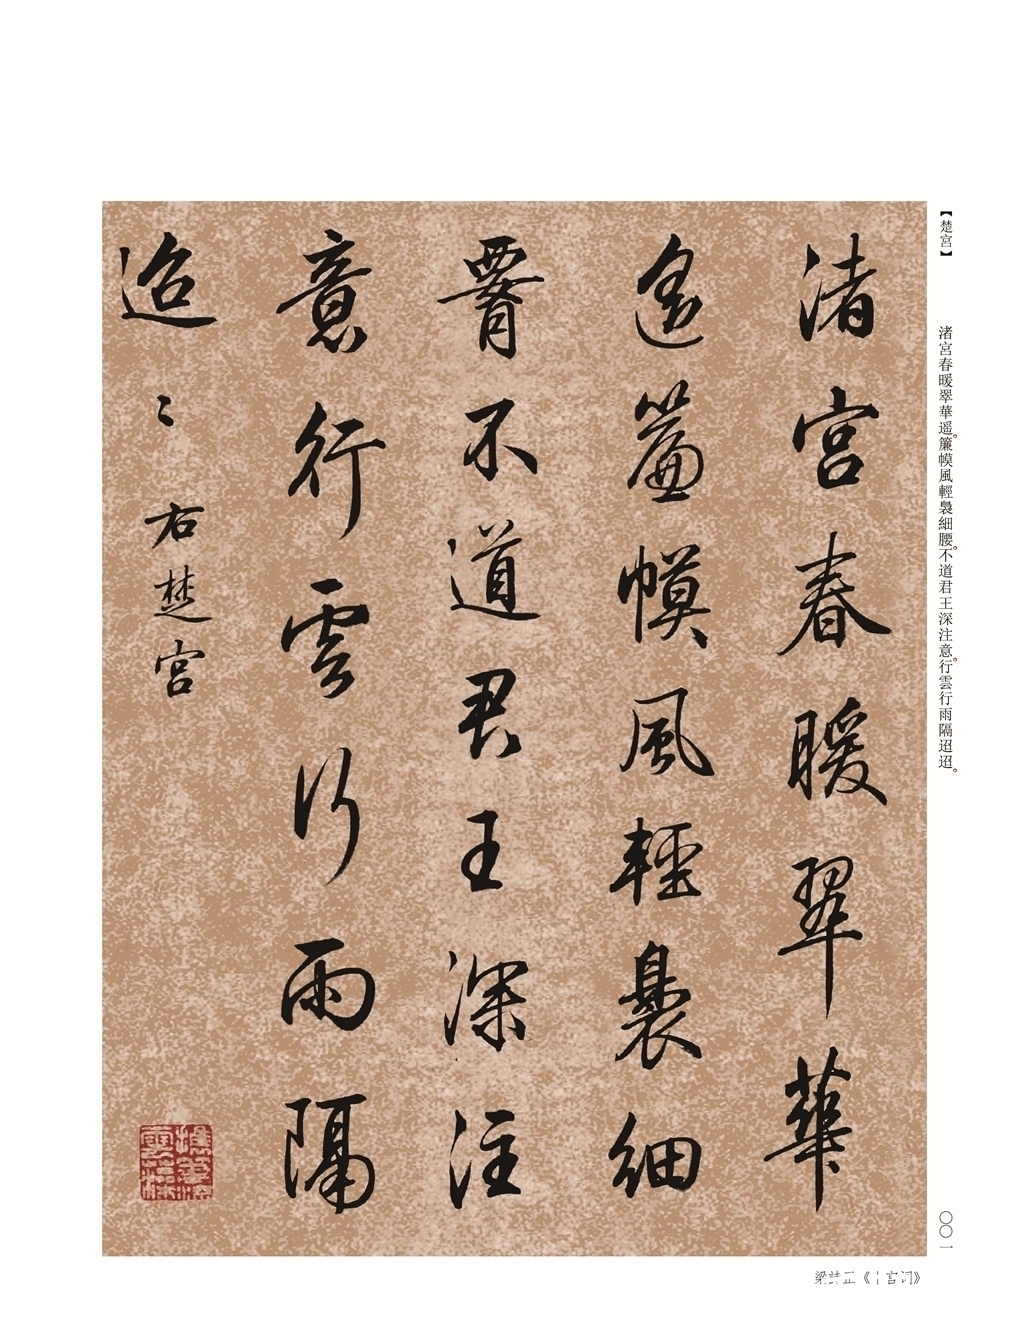 【楚宮】
渚宮春暖翠華遥。簾幙風輕裊細腰。不道君王深注意。行雲行雨隔迢迢。
〇〇一
渚宮春暖翠華
遥簾幙風輕裊細
腰不道君王深注
意行雲行雨隔
迢〻 右楚宮